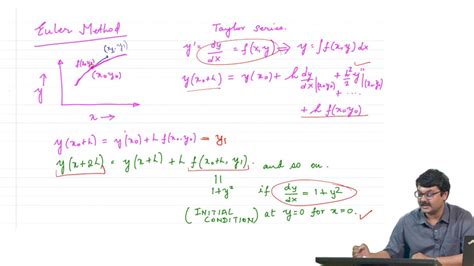 Euler Method
Taylor series.
(x₁,y₁)
f(x₀y₀)
(x₀y₀)
y
x →
y' = dy/dx = f(x,y) ⇒ y = ∫f(x,y) dx
y(x₀+h) = y(x₀) + h dy/dx |(x₀y₀) + h²/2 y'' |(x₀y₀) + ....
+ h f(x₀y₀)
y(x₀+h) = y(x₀) + h f(x₀,y₀) = y₁
y(x+2h) = y(x+h) + h f(x₀+h, y₁) and so on.
||
1+y² if dy/dx = 1+y²
(INITIAL CONDITION) at y=0 for x=0.